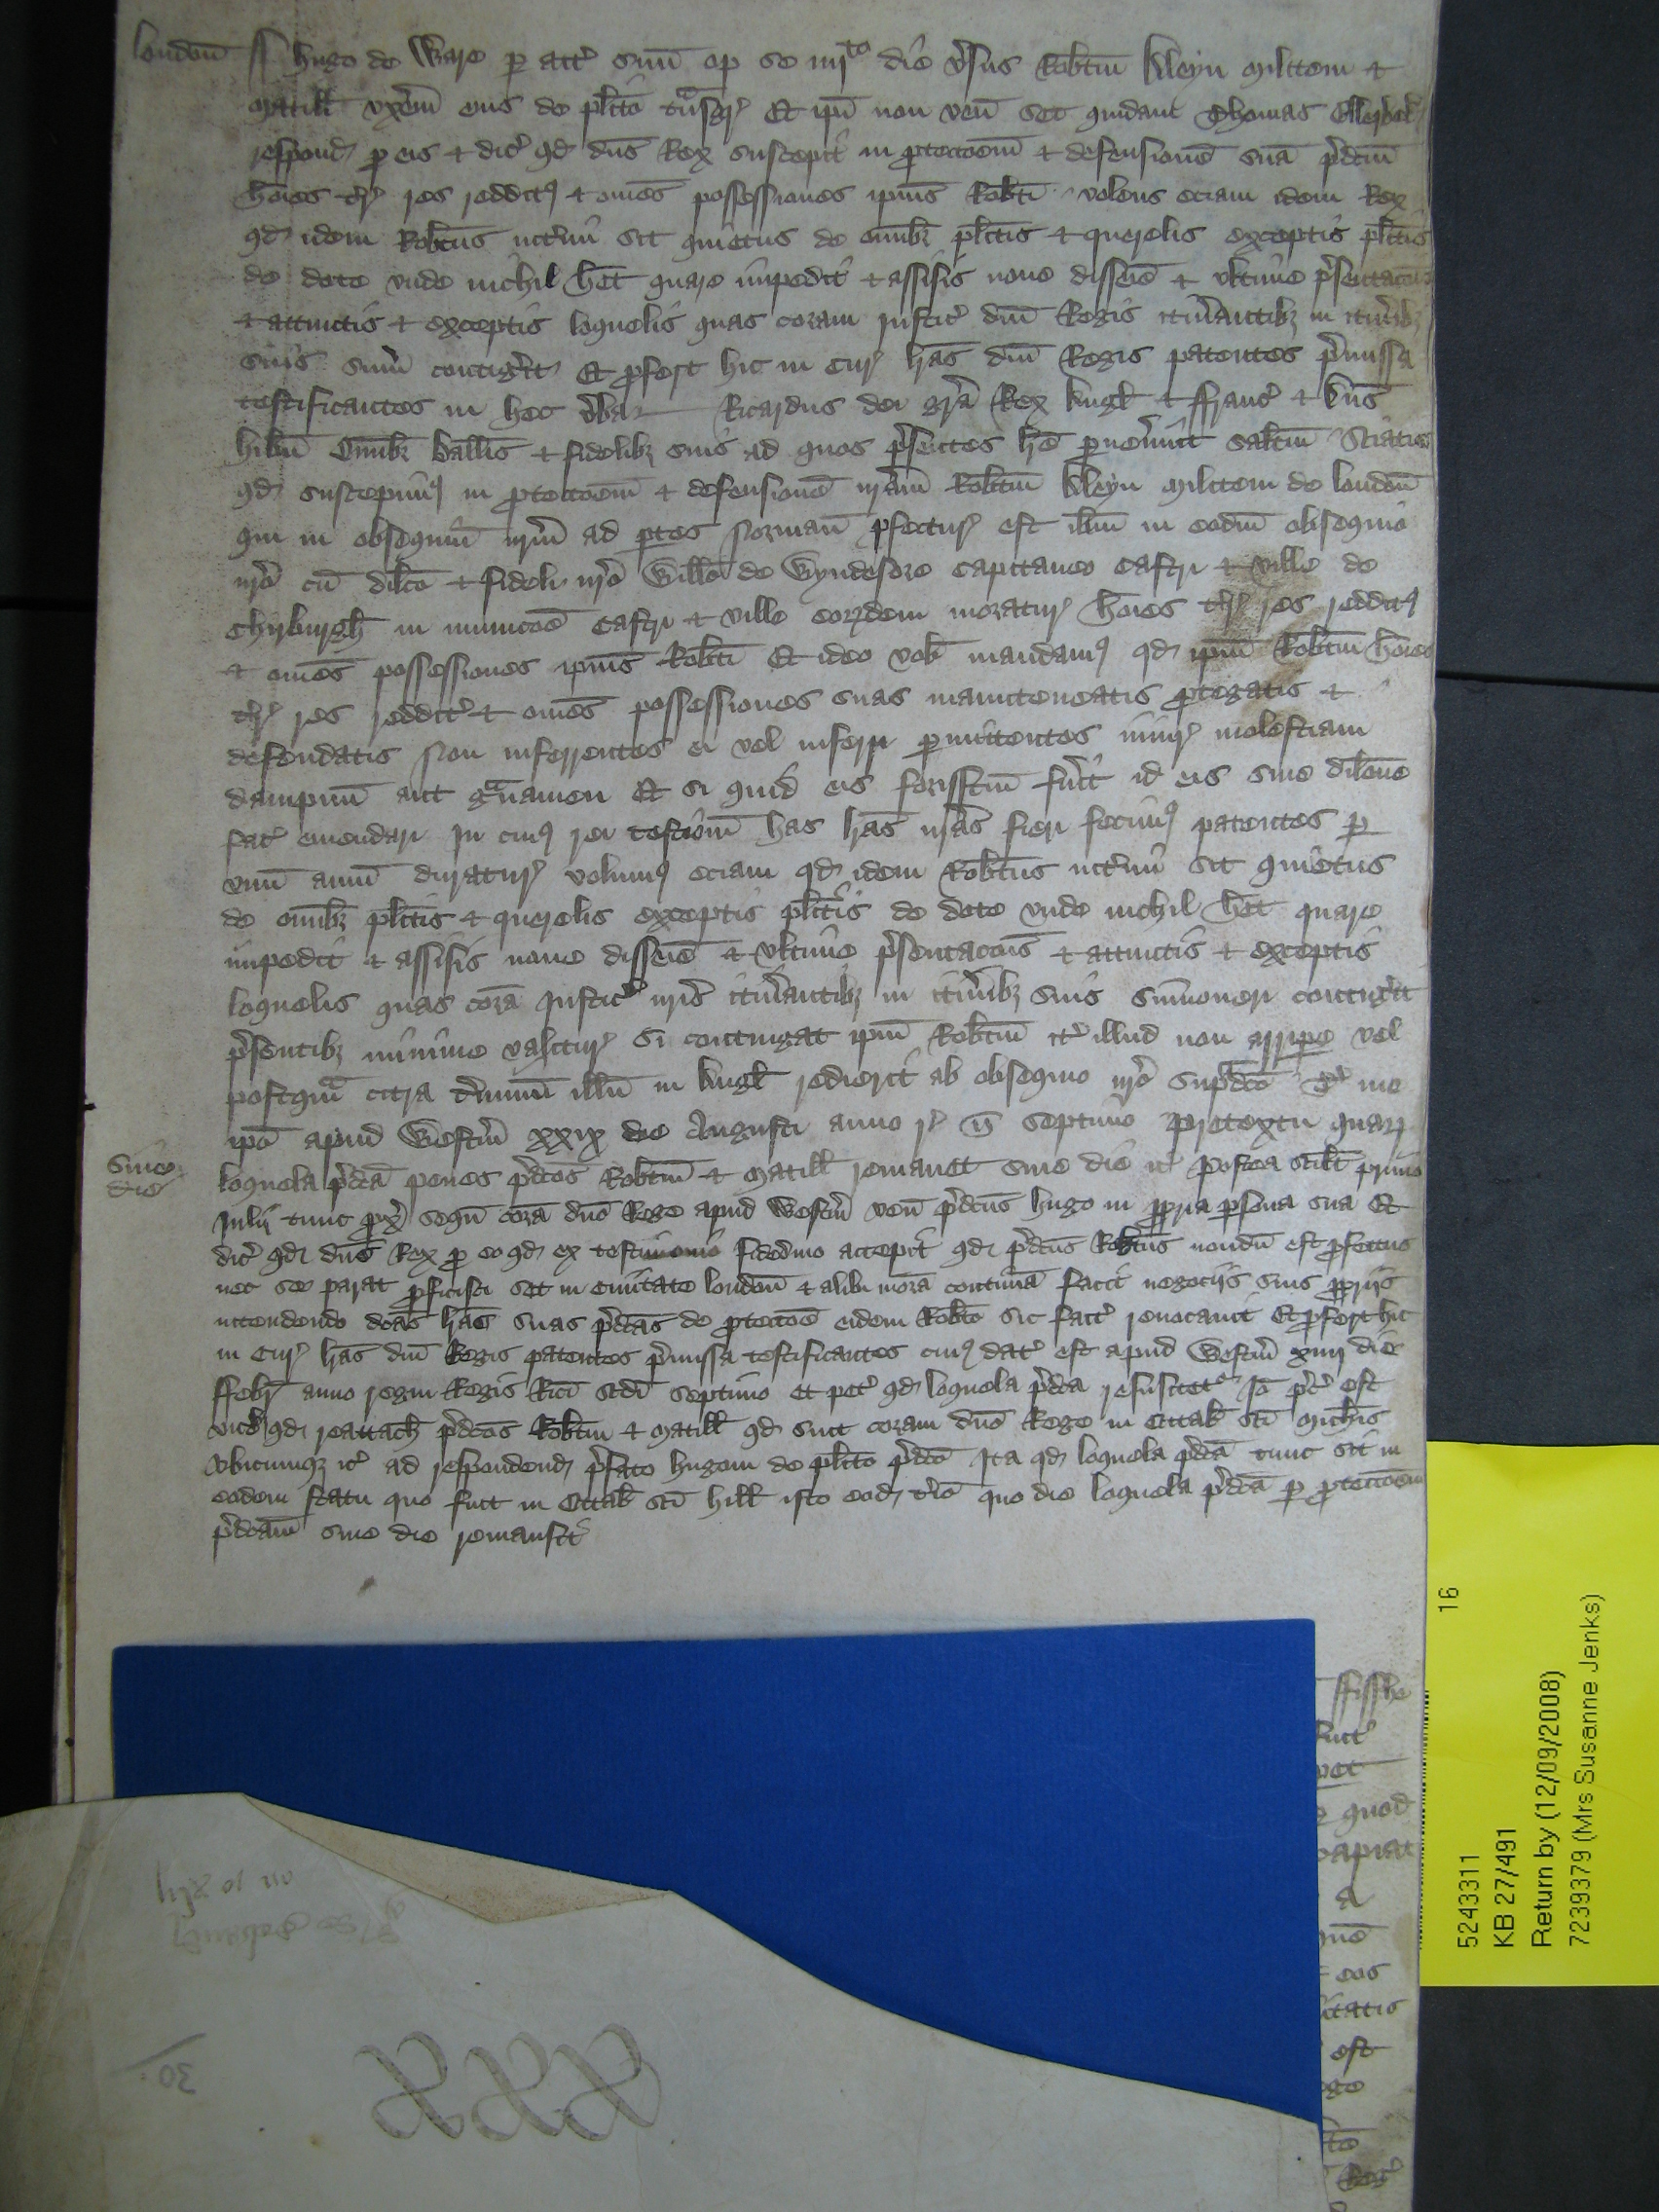 london̄ Hugo de Ware p̲ attꝰ suū op̄ se iiijto die v̾sus Rob̄tm Aleyn militem &
Matill̄ vxēm eius de pl̄ito t͛nsgrꝰ Et ip̄i non ven̄ set quidam Thomas
respond̛ p̲ eis & dicꝰ qd̛ dn̄s Rex suscepit in ꝓteccōem & defensionē suā p̄dcm̄
hōies t̛rꝭ res redditꝰ & om̄es possessiones ip̄ius Rob̄ti volens eciam idem Rex
qd̛ idem Rob̄tus int̛im sit quietus de om̄ibꝫ pl̄itis & querelis exceptis pl̄itis
de dote vnde nichil h̄et quare impedit & assisis noue disseiē & vltime p̄sentacōis
& attinctis & exceptis loquelis quas coram Justicꝰ dn̄i Regis itin̛antibꝫ in itin̛ibꝫ
suis sum̄ contig̛it Et ꝓfert hic in Curꝭ l̄ras dn̄i Regis patentes p̄missa
testificantes in hec v̛ba Ricardus dei gr̄a Rex Angl̄ & ffrancꝰ & Dn̄s
Hib̄n Om̄ibꝫ Ball̄is & fidelibꝫ suis ad quos p̄sentes l̄re p̲uen̛int sal̄tm Sciatis
qd̛ suscepimꝰ in ꝓteccōem & defensionē nr̄am Rob̄tm Aleyn militem de london̄
qui in obsequiū nr̄m ad p̲tes Norman̄ ꝓfecturꝰ est ib̄m in eodm̄ obsequio
nr̄o cū dil̄co & fideli nr̄o Will̄o de Wyndesore Capitaneo Castri & ville de
Chirburgh̄ in municōe Castri & ville eorꝝdem moraturꝰ hōies t̛rꝭ res redditꝰ
& om̄es possessiones ip̄ius Rob̄ti Et ideo vob̄ mandamꝰ qd̛ ip̄m Rob̄tm hōies
t̛rꝭ res redditꝰ & om̄es possessiones suas manuteneatis ꝓtegatis &
defendatis Non inferentes ei vel inferri p̲mittentes iniurꝭ molestiam
dampnū aut g͛uamen Et si quid eis forisfc̄m fưit id eis sine dil̄one
facꝰ emendari In cuiꝰ rei testiom̄ has l̄ras nr̄as fieri fecimꝰ patentes p̲
vnū annū duraturꝭ volumꝰ eciam qd̛ idem Rob̄tus int̛im sit quietus
de om̄ibꝫ pl̄itis & querelis exceptis pl̄itis de dote vnde nichil h̄et quare
impedit & assisis noue disseiē & vltime p̄sentacōis & attinctis & exceptis
loquelis quas corā Justicꝰ nr̄is itin̛antibꝫ in itin̛ibꝫ suis sūmoneri contig̛it
p̄sentibꝫ minime valiturꝭ si contingat ip̄m Rob̄tm itꝰ illud non arripe vel
postqm̄ citra t̛minū illū in Angl̄ redierit ab obsequio nr̄o sup̲dc̄o Tꝰ me
ip̄o apud Westm̄ xxix die Augusti anno rꝭ n̄ septimo Pretextu quarꝝ
Sine die
loquela p̄dc̄a penes p̄dc̄os Rob̄tm & Matill̄ remanet sine die &c̛ Postea scil̄t primo
Julij tunc ꝓx̄ seqū corā dn̄o Rege apud Westm̄ ven̄ p̄dc̄us Hugo in ꝓpria p̲sona sua Et
dicꝰ qd̛ dn̄s Rex ꝓ eo qd̛ ex testimonio fided̛no accepit qd̛ p̄dc̄us Rob̄tus nondū est ꝓfectus
nec se parat ꝓficisci set in Ciuitate london̄ & alibi morā continuā facit negociis suis ꝓpriis
intendendo dc̄as l̄ras suas p̄dc̄as de ꝓteccōe eidem Rob̄to sic factꝰ reuocauit Et ꝓfert hic
in Curꝭ l̄ras dn̄i Regis patentes p̄missa testificantes cuiꝰ datꝰ est apud Westm̄ xiiij die
ffebr̄ anno regni Regis Ric̄i sc̄di septimo et petꝰ qd̛ loquela p̄dc̄a resuscitetꝰ Iō p̄cꝰ est
vic̄ qd̛ reattach̄ p̄dc̄os Rob̄tm & Matill̄ qd̛ sint coram dn̄o Rege in Octab̄ sc̄i Mich̄is
vbicumqꝫ &c̛ ad respondend̛ p̄fato Hugoni de pl̄ito p̄dc̄o Ita qd̛ loquela p̄dc̄a tunc sit in
eodem statu quo fuit in Octab̄ sc̄i Hill̄ isto eod̛ t̛io quo die loquela p̄dc̄a p̲ ꝓteccōem
p̄dc̄am sine die remansit
ffisshe
quod
a
eos
est
30
5243311
16
KB 27/491
Return by (12/09/2008)
7239379 (Mrs Susanne Jenks)